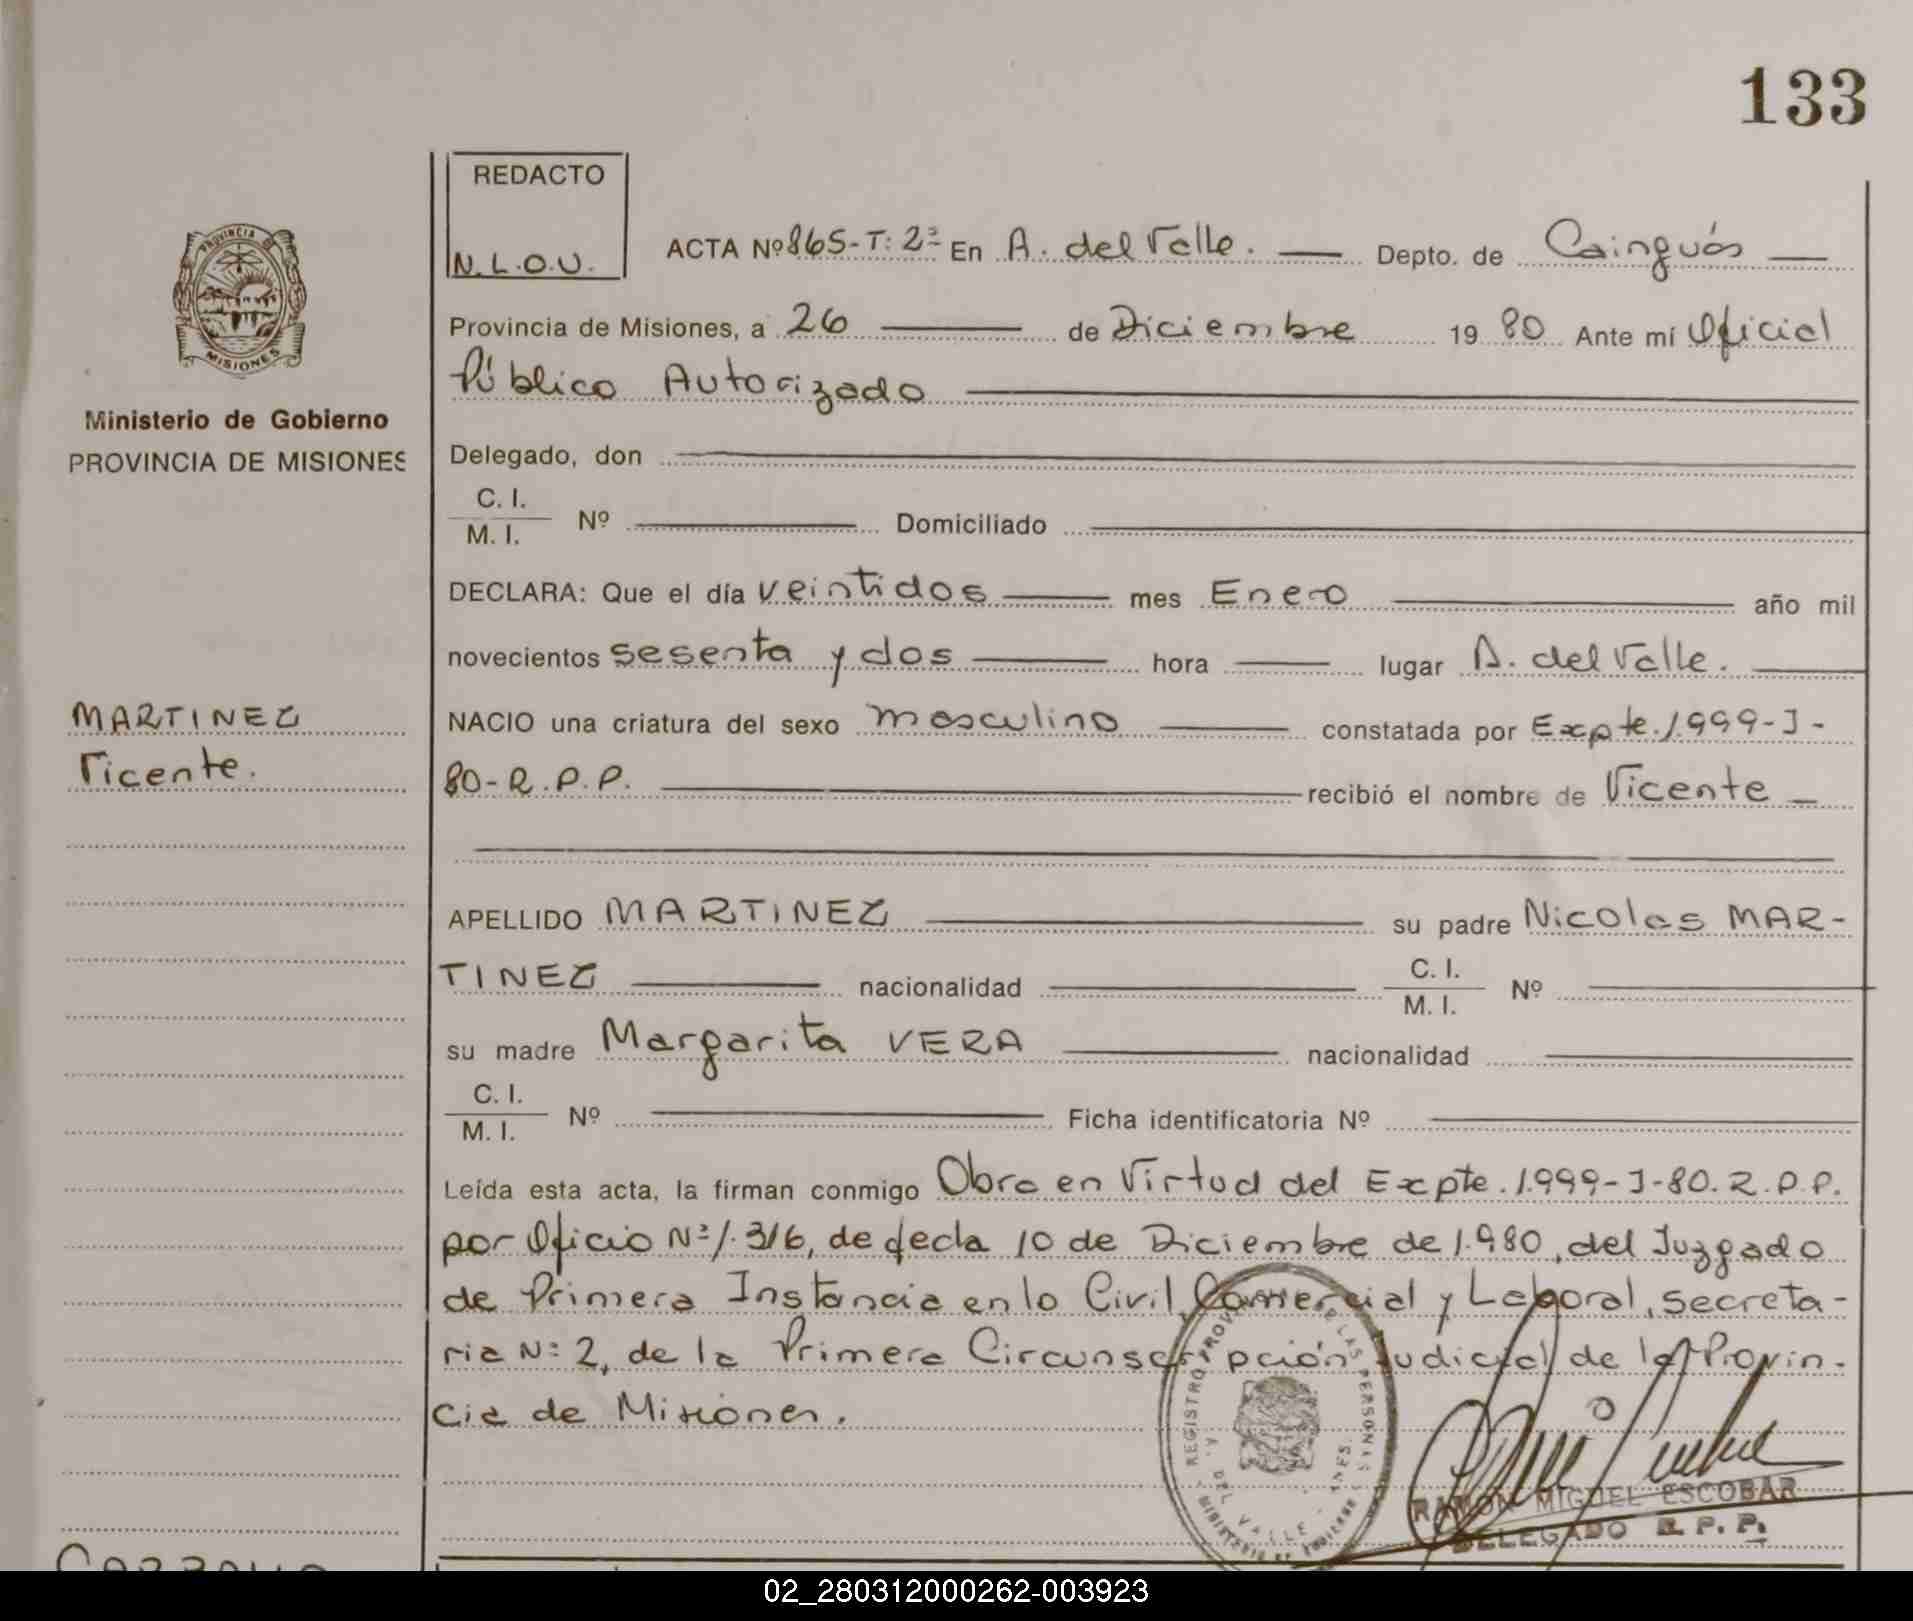 133
REDACTO
N.L.O.U.
ACTA Nº 865-T: 2ª En A. del Valle. Depto. de Cainguás
Provincia de Misiones, a 26 de Diciembre 1980 Ante mí Oficial
Público Autorizado
PROVINCIA DE MISIONES
Ministerio de Gobierno
PROVINCIA DE MISIONES
Delegado, don
C. I.
M. I. Nº Domiciliado
DECLARA: Que el día veintidos mes Enero año mil
novecientos sesenta y dos hora lugar A. del Valle.
MARTINEZ
Vicente.
NACIO una criatura del sexo masculino constatada por Expte. 1.999-J-
80-R.P.P. recibió el nombre de Vicente
APELLIDO MARTINEZ su padre Nicolas MAR-
TINEZ nacionalidad C. I. M. I. Nº
su madre Margarita VERA nacionalidad
C. I.
M. I. Nº Ficha identificatoria Nº
Leída esta acta, la firman conmigo Obra en Virtud del Expte. 1.999-J-80. R.P.P.
por Oficio Nº 1.316, de fecla 10 de Diciembre de 1.980, del Juzgado
de Primera Instancia en lo Civil, Comercial y Laboral, secreta-
ria Nº 2, de la Primera Circunscripción Judicial de la Provin-
cia de Misiones.
REGISTRO PROV DE LAS PERSONAS
A. DEL VALLE - MNES.
MINISTERIO DE GOBIERNO
RAMON MIGUEL ESCOBAR
DELEGADO R. P. P.
02_280312000262-003923